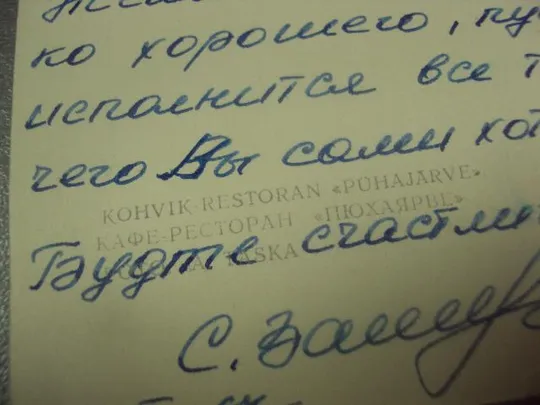 ко хорошего, пу
исполнится все т
чего Вы сами хот
KOHVIK-RESTORAN «PÜHAJÄRVE»
КАФЕ-РЕСТОРАН «ПЮХАЯРВЕ»
Будте счастли
С.